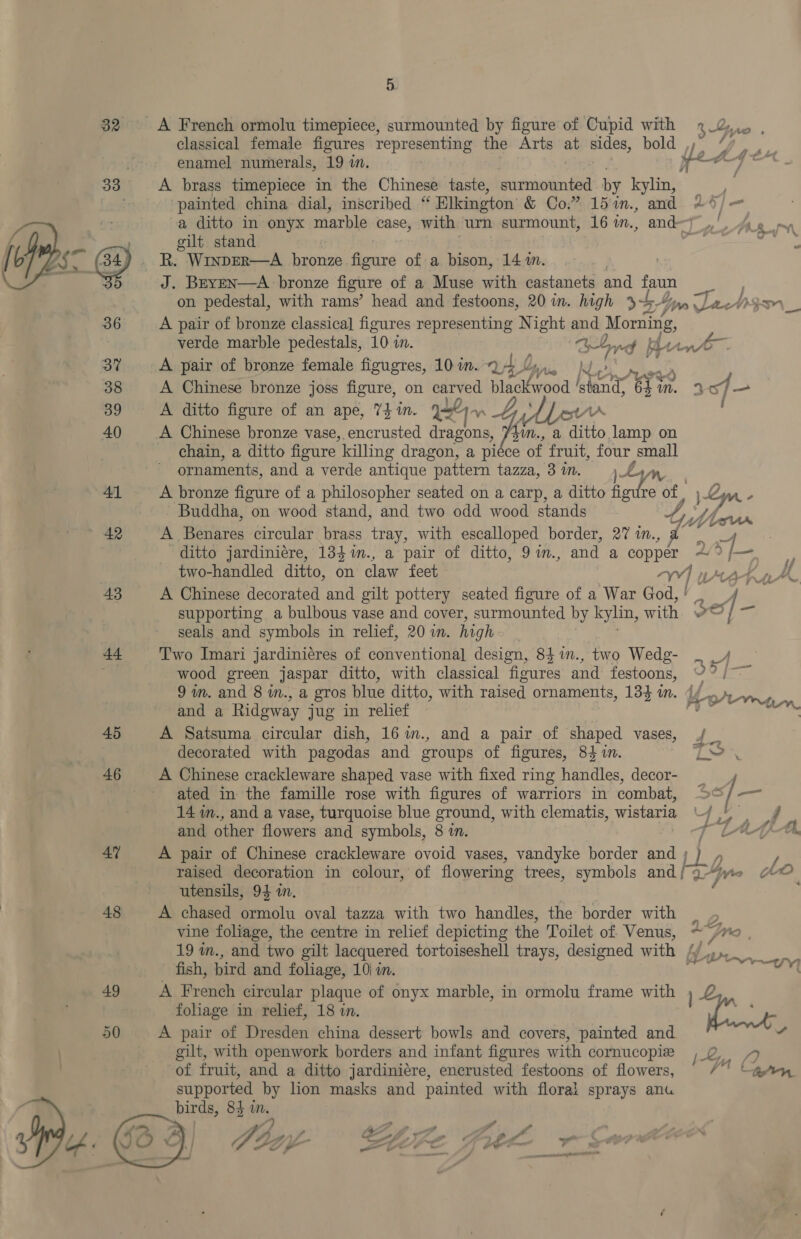 5
32 A French ormolu timepiece, surmounted by figure of Cupid with
classical female figures representing the Arts at sides, bold
enamel numerals, 19 in.
33 A brass timepiece in the Chinese taste, surmounted by kylin,
painted china dial, inscribed “Elkington & Co.” 15 in., and 25/-
a ditto in onyx marble case, with urn surmount, 16 in., and
gilt stand
34 R. WINDER—A bronze figure of a bison, 14 in.
35 J. BEYEN—A bronze figure of a Muse with castanets and faun
on pedestal, with rams’ head and festoons, 20 in. high Jackson
36 A pair of bronze classical figures representing Night and Morning,
verde marble pedestals, 10 in.
37 A pair of bronze female figugres, 10 in.
38 A Chinese bronze joss figure, on carved blackwood stand, 6½ in. 30/-
39 A ditto figure of an ape, 7½ in.
40 A Chinese bronze vase, encrusted dragons, 7½ in., a ditto lamp on
chain, a ditto figure killing dragon, a piéce of fruit, four small
ornaments, and a verde antique pattern tazza, 3 in.
41 A bronze figure of a philosopher seated on a carp, a ditto figure of
Buddha, on wood stand, and two odd wood stands
42 A Benares circular brass tray, with escalloped border, 27 in., a
ditto jardiniére, 13½ in., a pair of ditto, 9 in., and a copper 25/-
two-handled ditto, on claw feet
43 A Chinese decorated and gilt pottery seated figure of a War God,
supporting a bulbous vase and cover, surmounted by kylin, with
seals and symbols in relief, 20 in. high
44 Two Imari jardiniéres of conventional design, 8½ in., two Wedg-
wood green jaspar ditto, with classical figures and festoons,
9 in. and 8 in., a gros blue ditto, with raised ornaments, 13½ in.
and a Ridgway jug in relief
45 A Satsuma circular dish, 16 in., and a pair of shaped vases,
decorated with pagodas and groups of figures, 8½ in.
46 A Chinese crackleware shaped vase with fixed ring handles, decor-
ated in the famille rose with figures of warriors in combat,
14 in., and a vase, turquoise blue ground, with clematis, wistaria
and other flowers and symbols, 8 in.
47 A pair of Chinese crackleware ovoid vases, vandyke border and
raised decoration in colour, of flowering trees, symbols and
utensils, 9½ in.
48 A chased ormolu oval tazza with two handles, the border with
vine foliage, the centre in relief depicting the Toilet of Venus,
19 in., and two gilt lacquered tortoiseshell trays, designed with
fish, bird and foliage, 10 in.
49 A French circular plaque of onyx marble, in ormolu frame with
foliage in relief, 18 in.
50 A pair of Dresden china dessert bowls and covers, painted and
gilt, with openwork borders and infant figures with cornucopiæ
of fruit, and a ditto jardiniére, encrusted festoons of flowers,
supported by lion masks and painted with floral sprays and
birds, 8½ in.